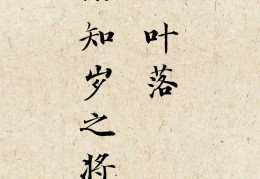 叶落
知岁之将